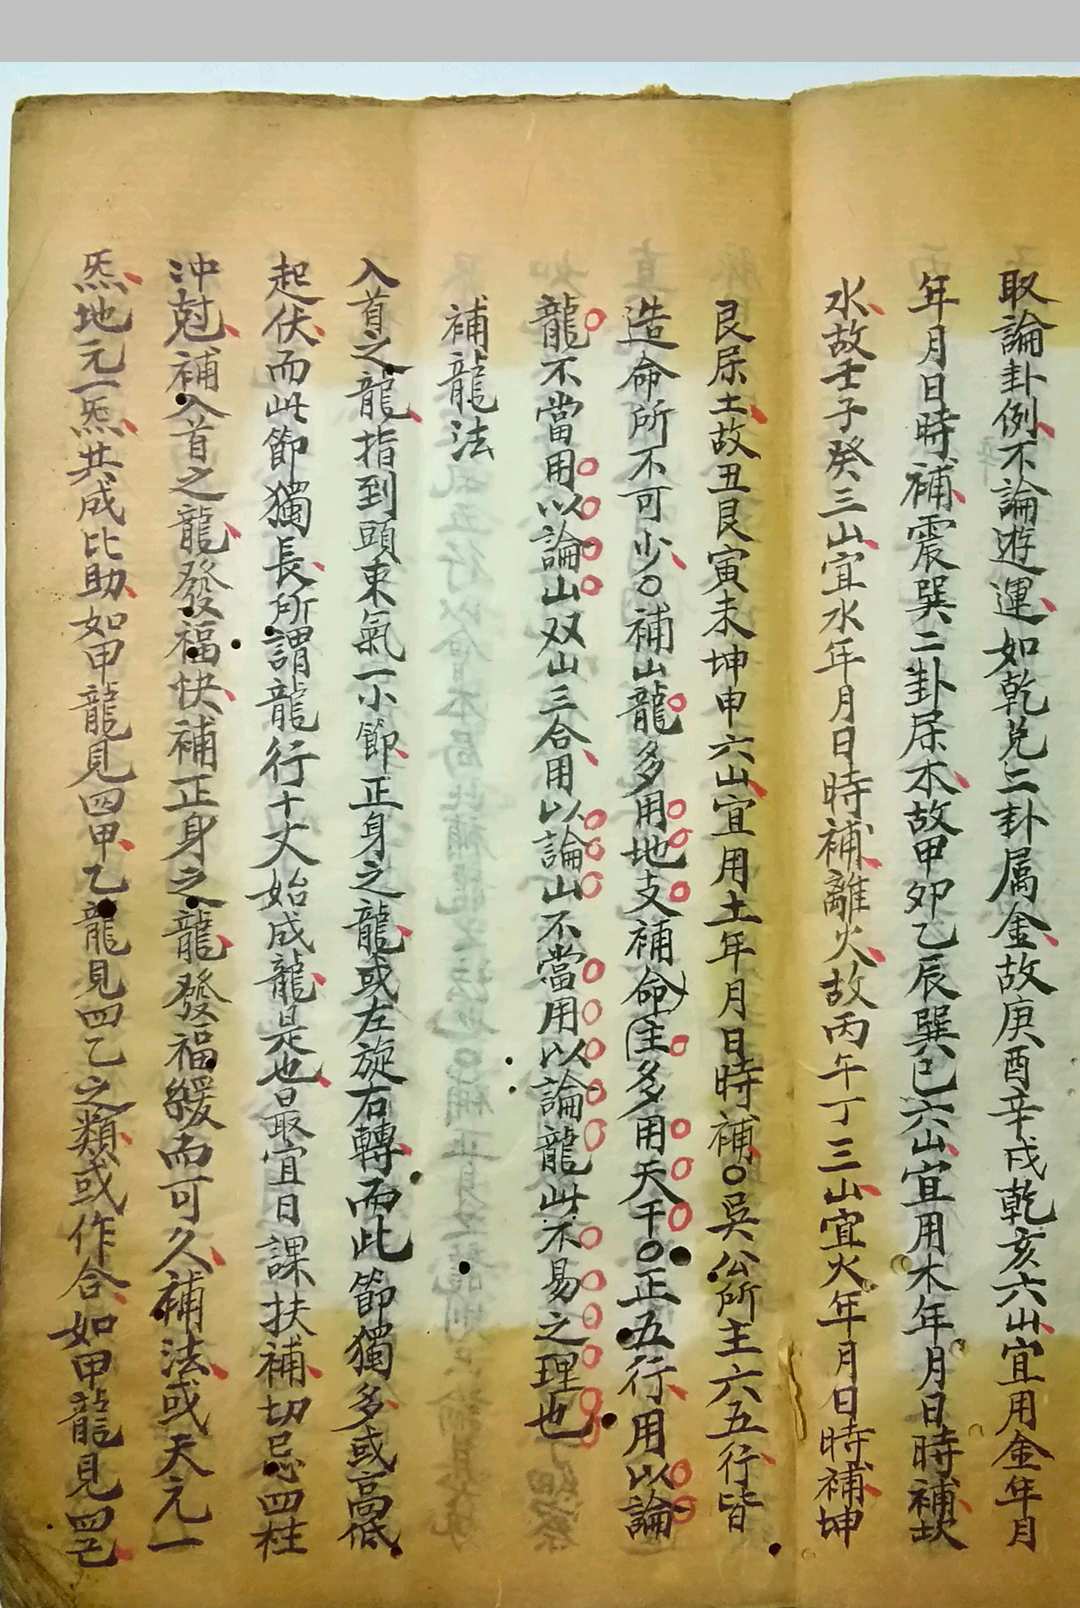 取論卦例不論遊運如乾兌二卦属金故庚酉辛戌乾亥六山宜用金年月
年月日時補震巽二卦属木故甲卯乙辰巽巳六山宜用木年月日時補坎
水故壬子癸三山宜水年月日時補離火故丙午丁三山宜火年月日時補坤
艮属土故丑艮寅未坤申六山宜用土年月日時補〇吳公所主六五行皆
造命所不可少〇補山龍多用地支補命主多用天干〇正五行用以論
龍不當用以論山双山三合用以論山不當用以論龍此不易之理也
補龍法
入首之龍指到頭束氣一小節正身之龍或左旋右轉而此節獨多或高低
起伏而此節獨長所謂龍行十丈始成龍是也最宜日課扶補切忌四柱
沖尅補入首之龍發福快補正身之龍發福緩而可久補法或天元一
炁地元一炁共成比助如甲龍見四甲乙龍見四乙之類或作合如甲龍見四己